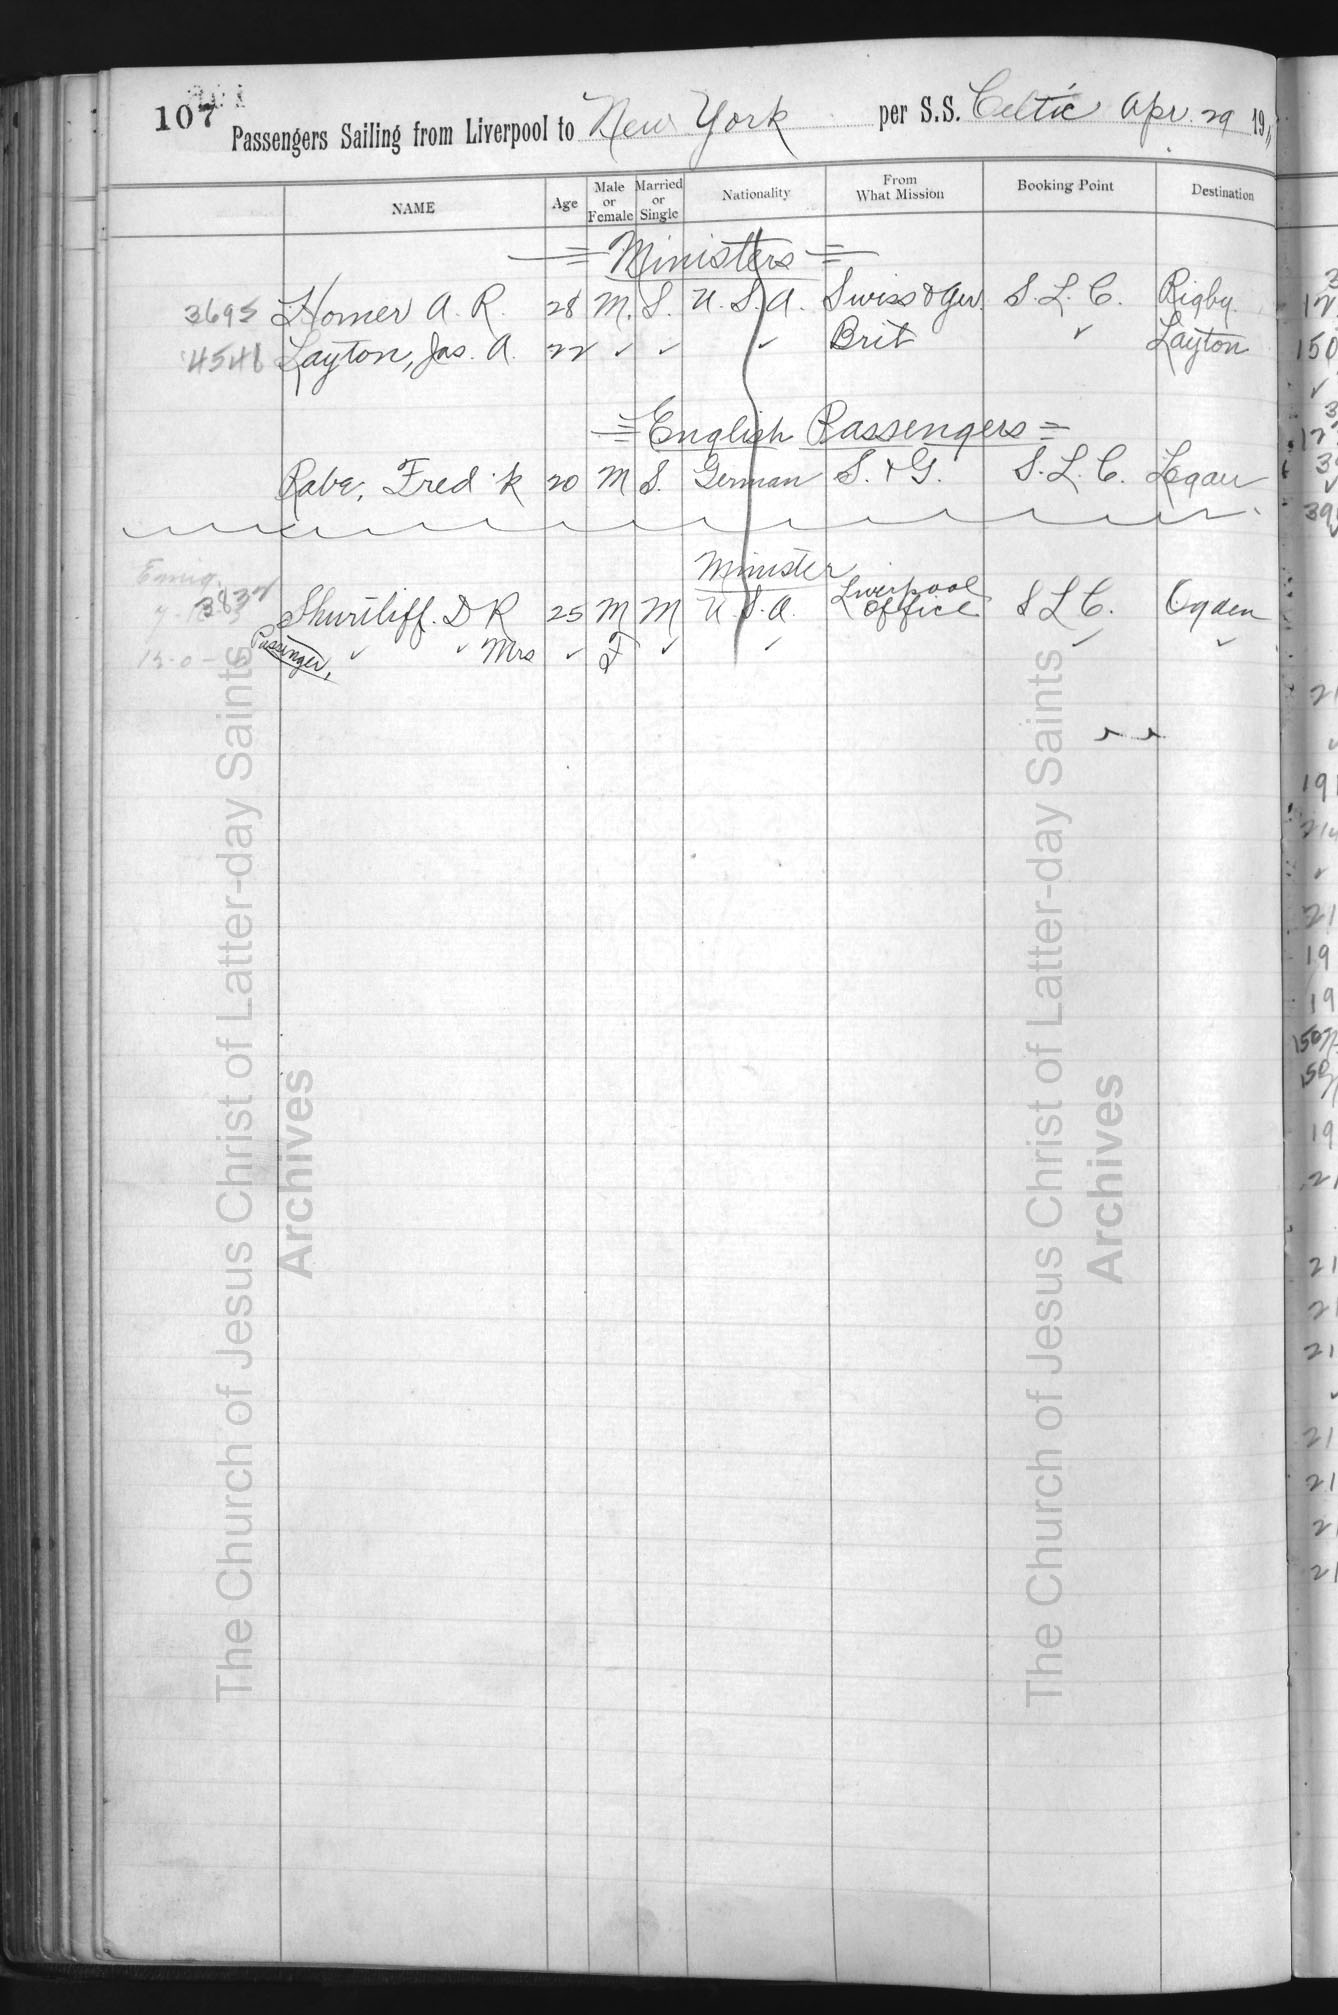 107
Passengers Sailing from Liverpool to New York per S.S. Celtic Apr. 29 19
NAME Age Male or Female Married or Single Nationality From What Mission Booking Point Destination
Ministers
3695 Homer A. R. 28 M. S. U. S. A. Swiss & Ger. S. L. C. Rigby
4541 Layton, Jas. A. 22 ✓ ✓ ✓ Brit ✓ Layton
English Passengers
Rabe, Fred'k 20 M S. German S. & G. S. L. C. Logan
Emig. Minister
3837 Shurtliff. D R 25 M M U. S. A. Liverpool Office S L C. Ogden
Passenger, ✓ ✓ Mrs ✓ F ✓ ✓ ✓ ✓
The Church of Jesus Christ of Latter-day Saints
Archives
The Church of Jesus Christ of Latter-day Saints
Archives